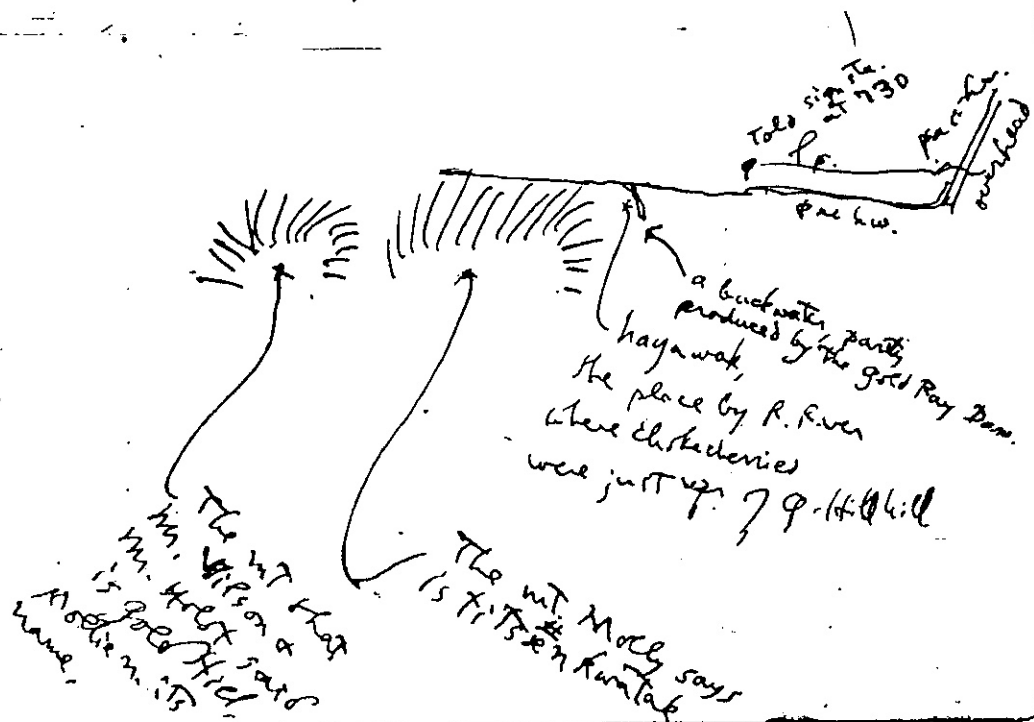 Told sign sta.
at 730
Pac. hw.
overhead
a backwater, partly
produced by the Gold Ray Dam.
hayawak,
the place by R. River
where chokecherries
were just up.
The mt that
Mr. Wilson &
Mr. Holst said
is Gold Hill
Mollie m. its
name.
The mt. Molly says
is titsankwatak